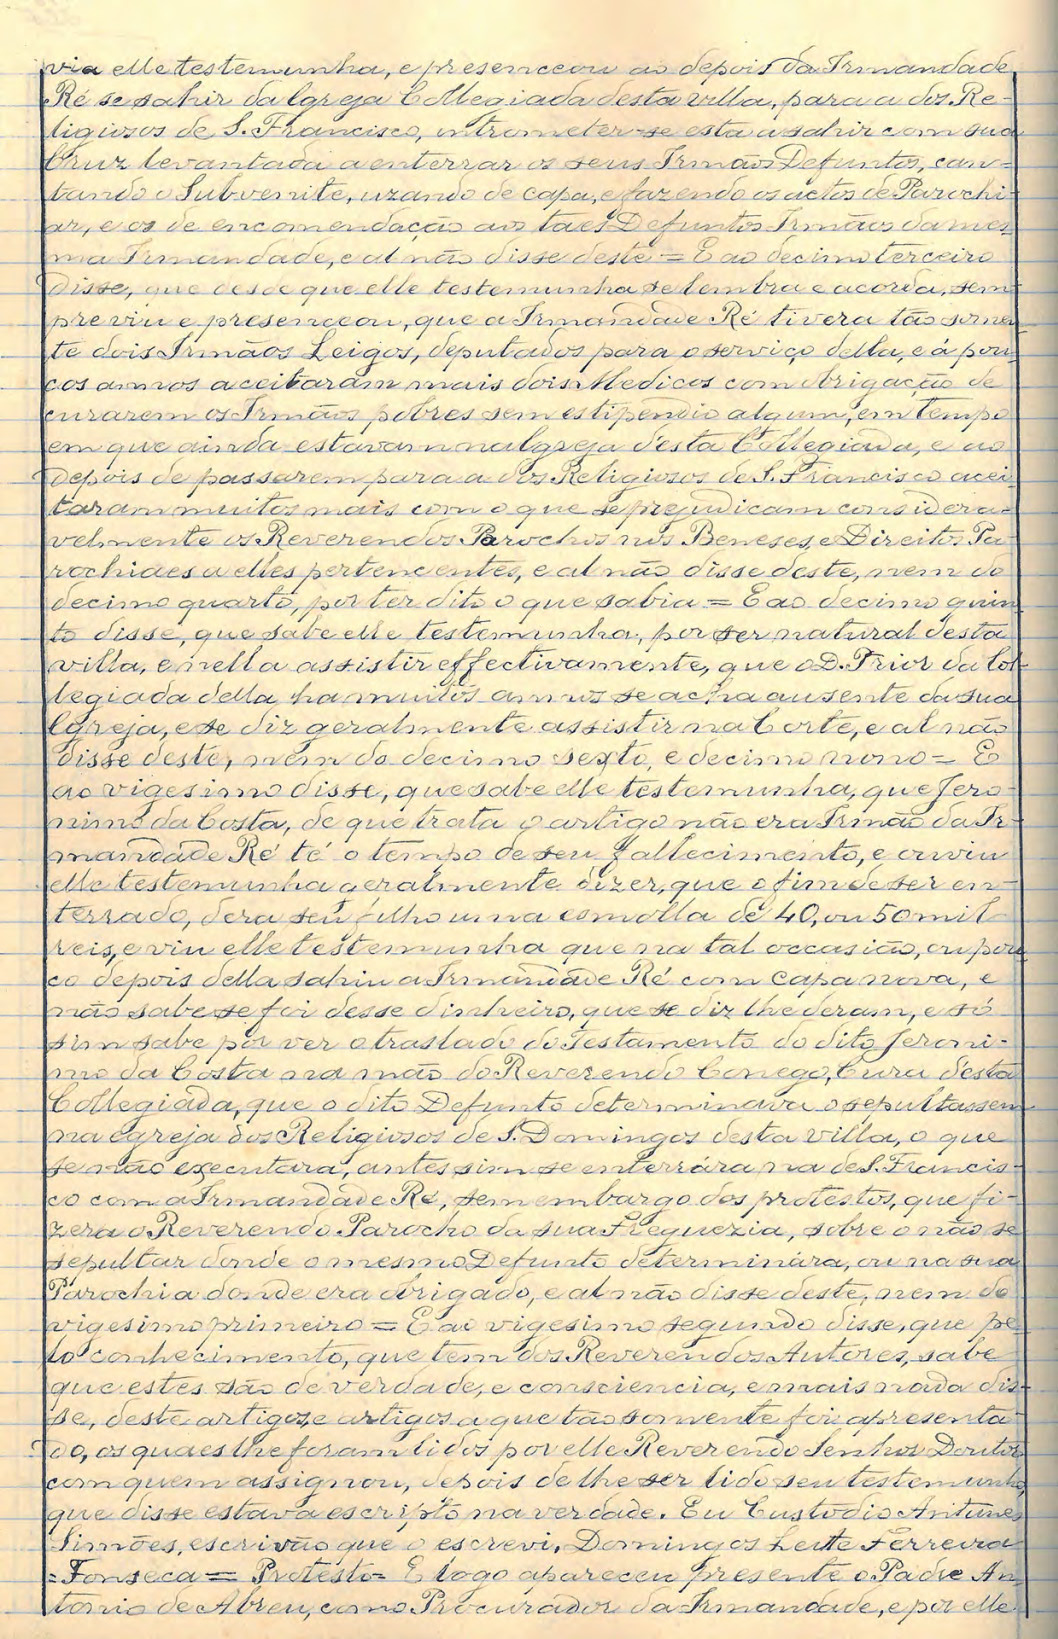 via elle testemunha, e presenceou ao depois da Irmandade
Ré se sahir da Igreja Collegiada desta villa, para a dos Re-
ligiosos de S. Francisco, intrometer-se esta a sahir com sua
Cruz levantada a enterrar os seus Irmãos Defuntos, can-
tando o Subvenite, uzando de capa, e fazendo os actos de Parochi-
ar, e os de encomendação aos taes Defuntos Irmãos da mes-
ma Irmandade, e al não disse deste = E ao decimo terceiro
disse, que desde que elle testemunha se lembra e acorda, sem-
pre viu e presenceou, que a Irmandade Ré tivera tão somen-
te dois Irmãos Leigos, deputados para o serviço della, e á pou-
cos annos aceitaram mais dois Medicos com obrigação de
curarem os Irmãos pobres sem estipendio algum, em tempo
em que ainda estavam na Igreja desta Collegiada, e ao
depois de passarem para a dos Religiosos de S. Francisco acei-
taram muitos mais com o que se prejudicam considera-
velmente os Reverendos Parochos nos Beneses, e Direitos Pa-
rochiaes a elles pertencentes, e al não disse deste, nem do
decimo quarto, por ter dito o que sabia = E ao decimo quin-
to disse, que sabe elle testemunha, por ser natural desta
villa, e nella assistir effectivamente, que o D. Prior da Col-
legiada della, ha muitos annos se acha ausente da sua
Igreja, e se diz geralmente assistir na Corte, e al não
disse deste, nem do decimo sexto, e decimo nono = E
ao vigesimo disse, que sabe elle testemunha, que Jero-
nimo da Costa, de que trata o artigo não era Irmão da Ir-
mandade Ré té o tempo de seu fallecimento, e ouviu
elle testemunha geralmente dizer, que o fim de ser en-
terrado, dera seu filho uma esmolla de 40, ou 50 mil
reis, e viu elle testemunha que na tal occasião, ou pou-
co depois della sahiu a Irmandade Ré com capa nova, e
não sabe se foi desse dinheiro, que se diz lhe deram, e só
sim sabe por ver o traslado do Testamento do dito Jeroni-
mo da Costa na mão do Reverendo Conego, Cura desta
Collegiada, que o dito Defunto determinava o sepultassem
na egreja dos Religiosos de S. Domingos desta villa, o que
se não executara, antes sim se enterrára na de S. Francis-
co com a Irmandade Ré, sem embargo dos protestos, que fi-
zera o Reverendo Parocho da sua Freguezia, sobre o não se
sepultar donde o mesmo Defunto determinára, ou na sua
Parochia donde era obrigado, e al não disse deste, nem do
vigesimo primeiro = E ao vigesimo segundo disse, que pe-
lo conhecimento, que tem dos Reverendos Autores, sabe
que estes são de verdade, e consciencia, e mais nada dis-
se, deste artigo, e artigos a que tão somente foi apresenta-
do, os quaes lhe foram lidos por elle Reverendo Senhor Doutor
com quem assignou, depois de lhe ser lido seu testemunho,
que disse estava escripto na verdade. Eu Custodio Antunes
Simões, escrivão que o escrevi, Domingos Leite Ferreira
= Fonseca = Protesto = E logo apareceu presente o Padre An-
tonio de Abreu, como Procurador da Irmandade, e por elle